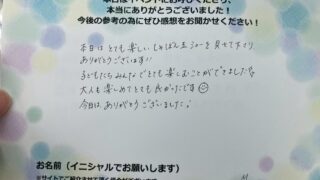 本日はイベントにお呼びくださり、
本当にありがとうございました！
今後の参考の為にぜひ感想をお聞かせください！
本日はとても楽しいしゃぼん玉ショーを見せて下さり
ありがとうございます!!
子どもたちみんなでとても楽しむことができました!!
大人も楽しめてとても良かったです
今日は、ありがとうございました。
お名前（イニシャルでお願いします）
※サイトでご紹介させて頂く